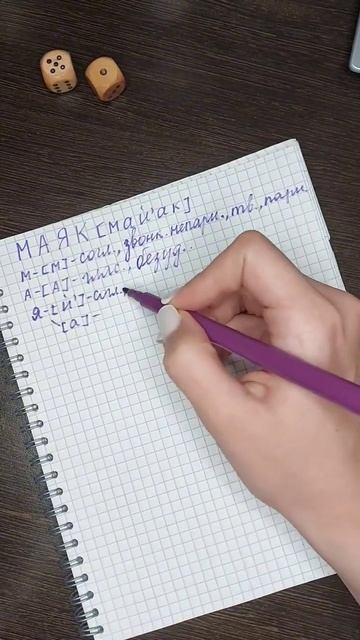 МАЯК [май'ак]
М-[м]-согл., звонк. непарн., тв., парн
А-[А]-глас., безуд..
Я-[й']-согл.
[а]-